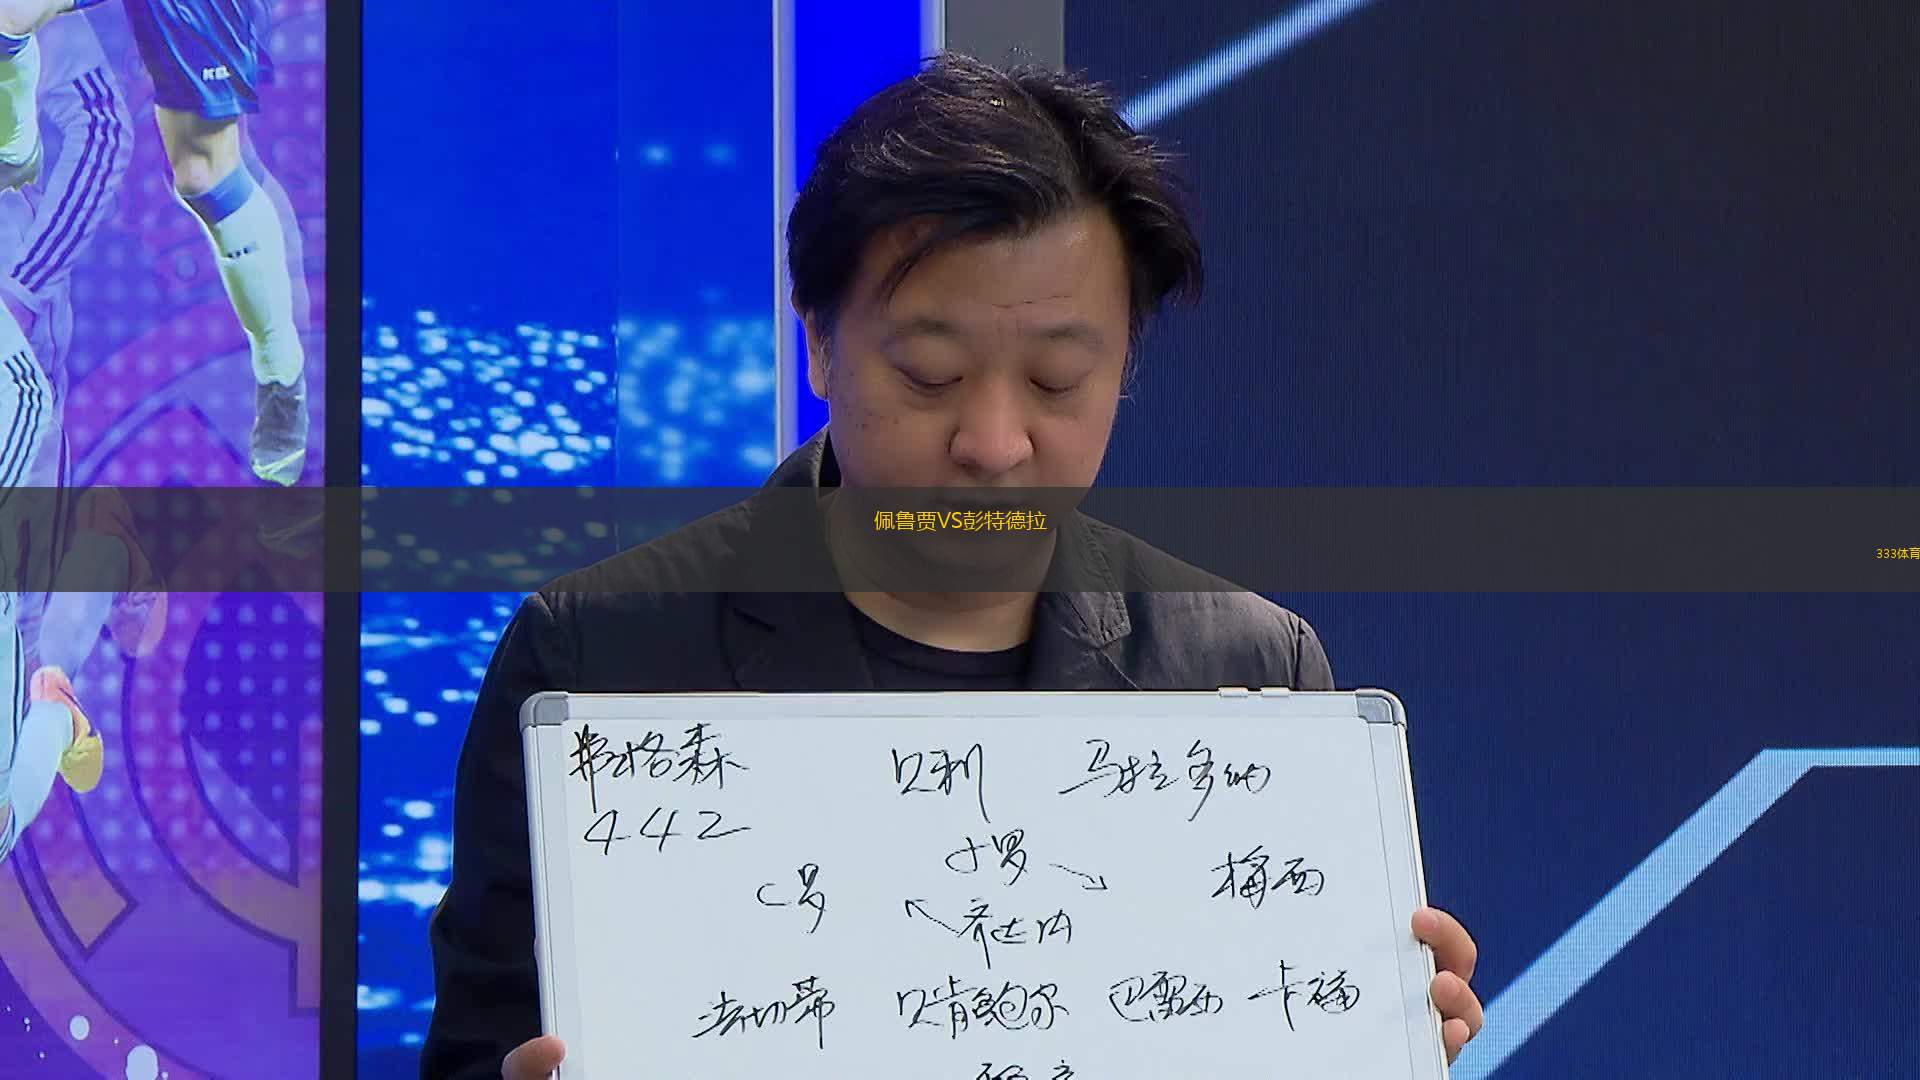 佩鲁贾VS彭特德拉
333体育
弗格森 贝利 马拉多纳
442
小罗
C罗 梅西
齐达内
法切蒂 贝肯鲍尔 巴雷西 卡福